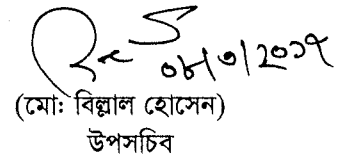 ০৮/৩/২০১৭
(মোঃ বিল্লাল হোসেন)
উপসচিব